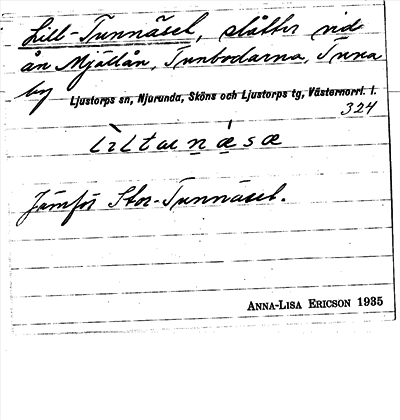 Lill-Tunnäsel, slåtter vid
ån Mjällån, Tunbodarna, Tuna
by Ljustorps sn, Njurunda, Sköns och Ljustorps tg, Västernorrl. l.
324
Jämför Stor-Tunnäsel.
ANNA-LISA ERICSON 1935